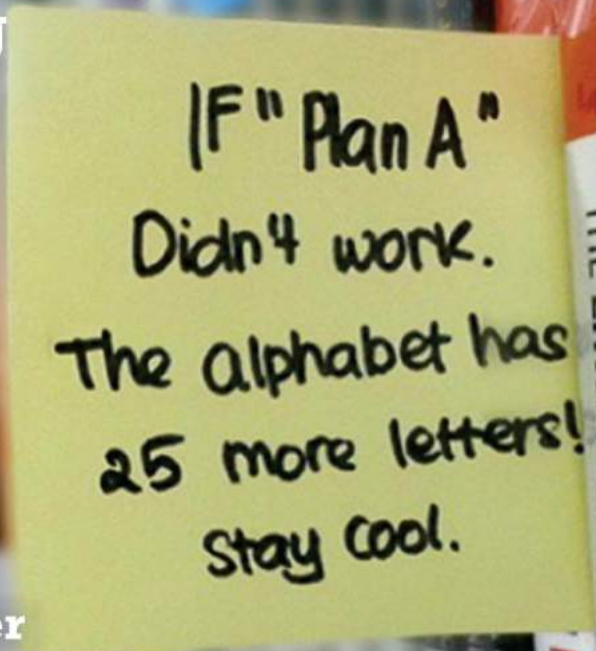 IF "Plan A"
Didn't work.
The alphabet has
25 more letters!
Stay cool.
er